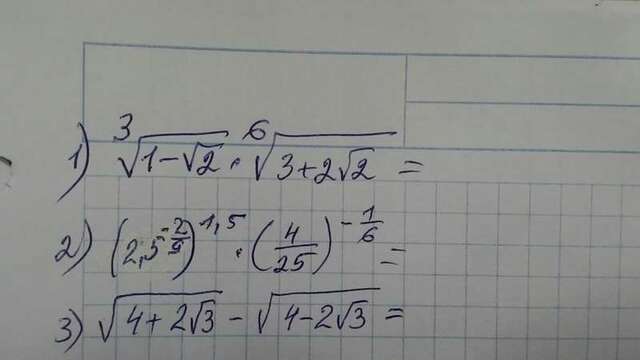 1) ∛(1-√2) · ⁶√(3+2√2) =
2) (2,5^(-2/9))^(1,5) · (4/25)^(-1/6) =
3) √(4+2√3) - √(4-2√3) =